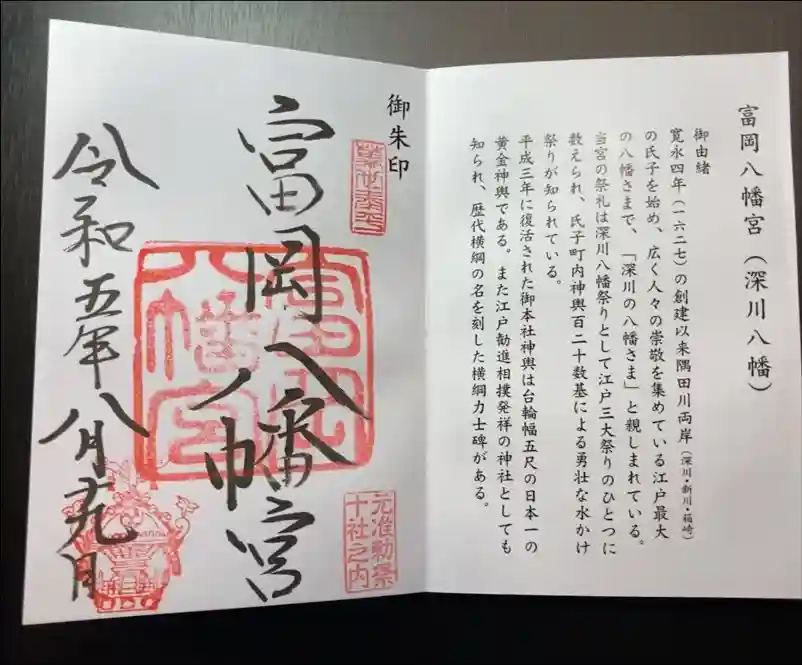 富岡八幡宮（深川八幡）
御由緒
寛永四年（一六二七）の創建以来隅田川両岸（深川・新川・箱崎）
の氏子を始め、広く人々の崇敬を集めている江戸最大
の八幡さまで、「深川の八幡さま」と親しまれている。
当宮の祭礼は深川八幡祭りとして江戸三大祭りのひとつに
数えられ、氏子町内神輿百二十数基による勇壮な水かけ
祭りが知られている。
平成三年に復活された御本社神輿は台輪幅五尺の日本一の
黄金神輿である。また江戸勧進相撲発祥の神社としても
知られ、歴代横綱の名を刻した横綱力士碑がある。
御朱印
元准勅祭
十社之内
富岡八幡宮
富岡
八幡宮
令和五年八月十九日